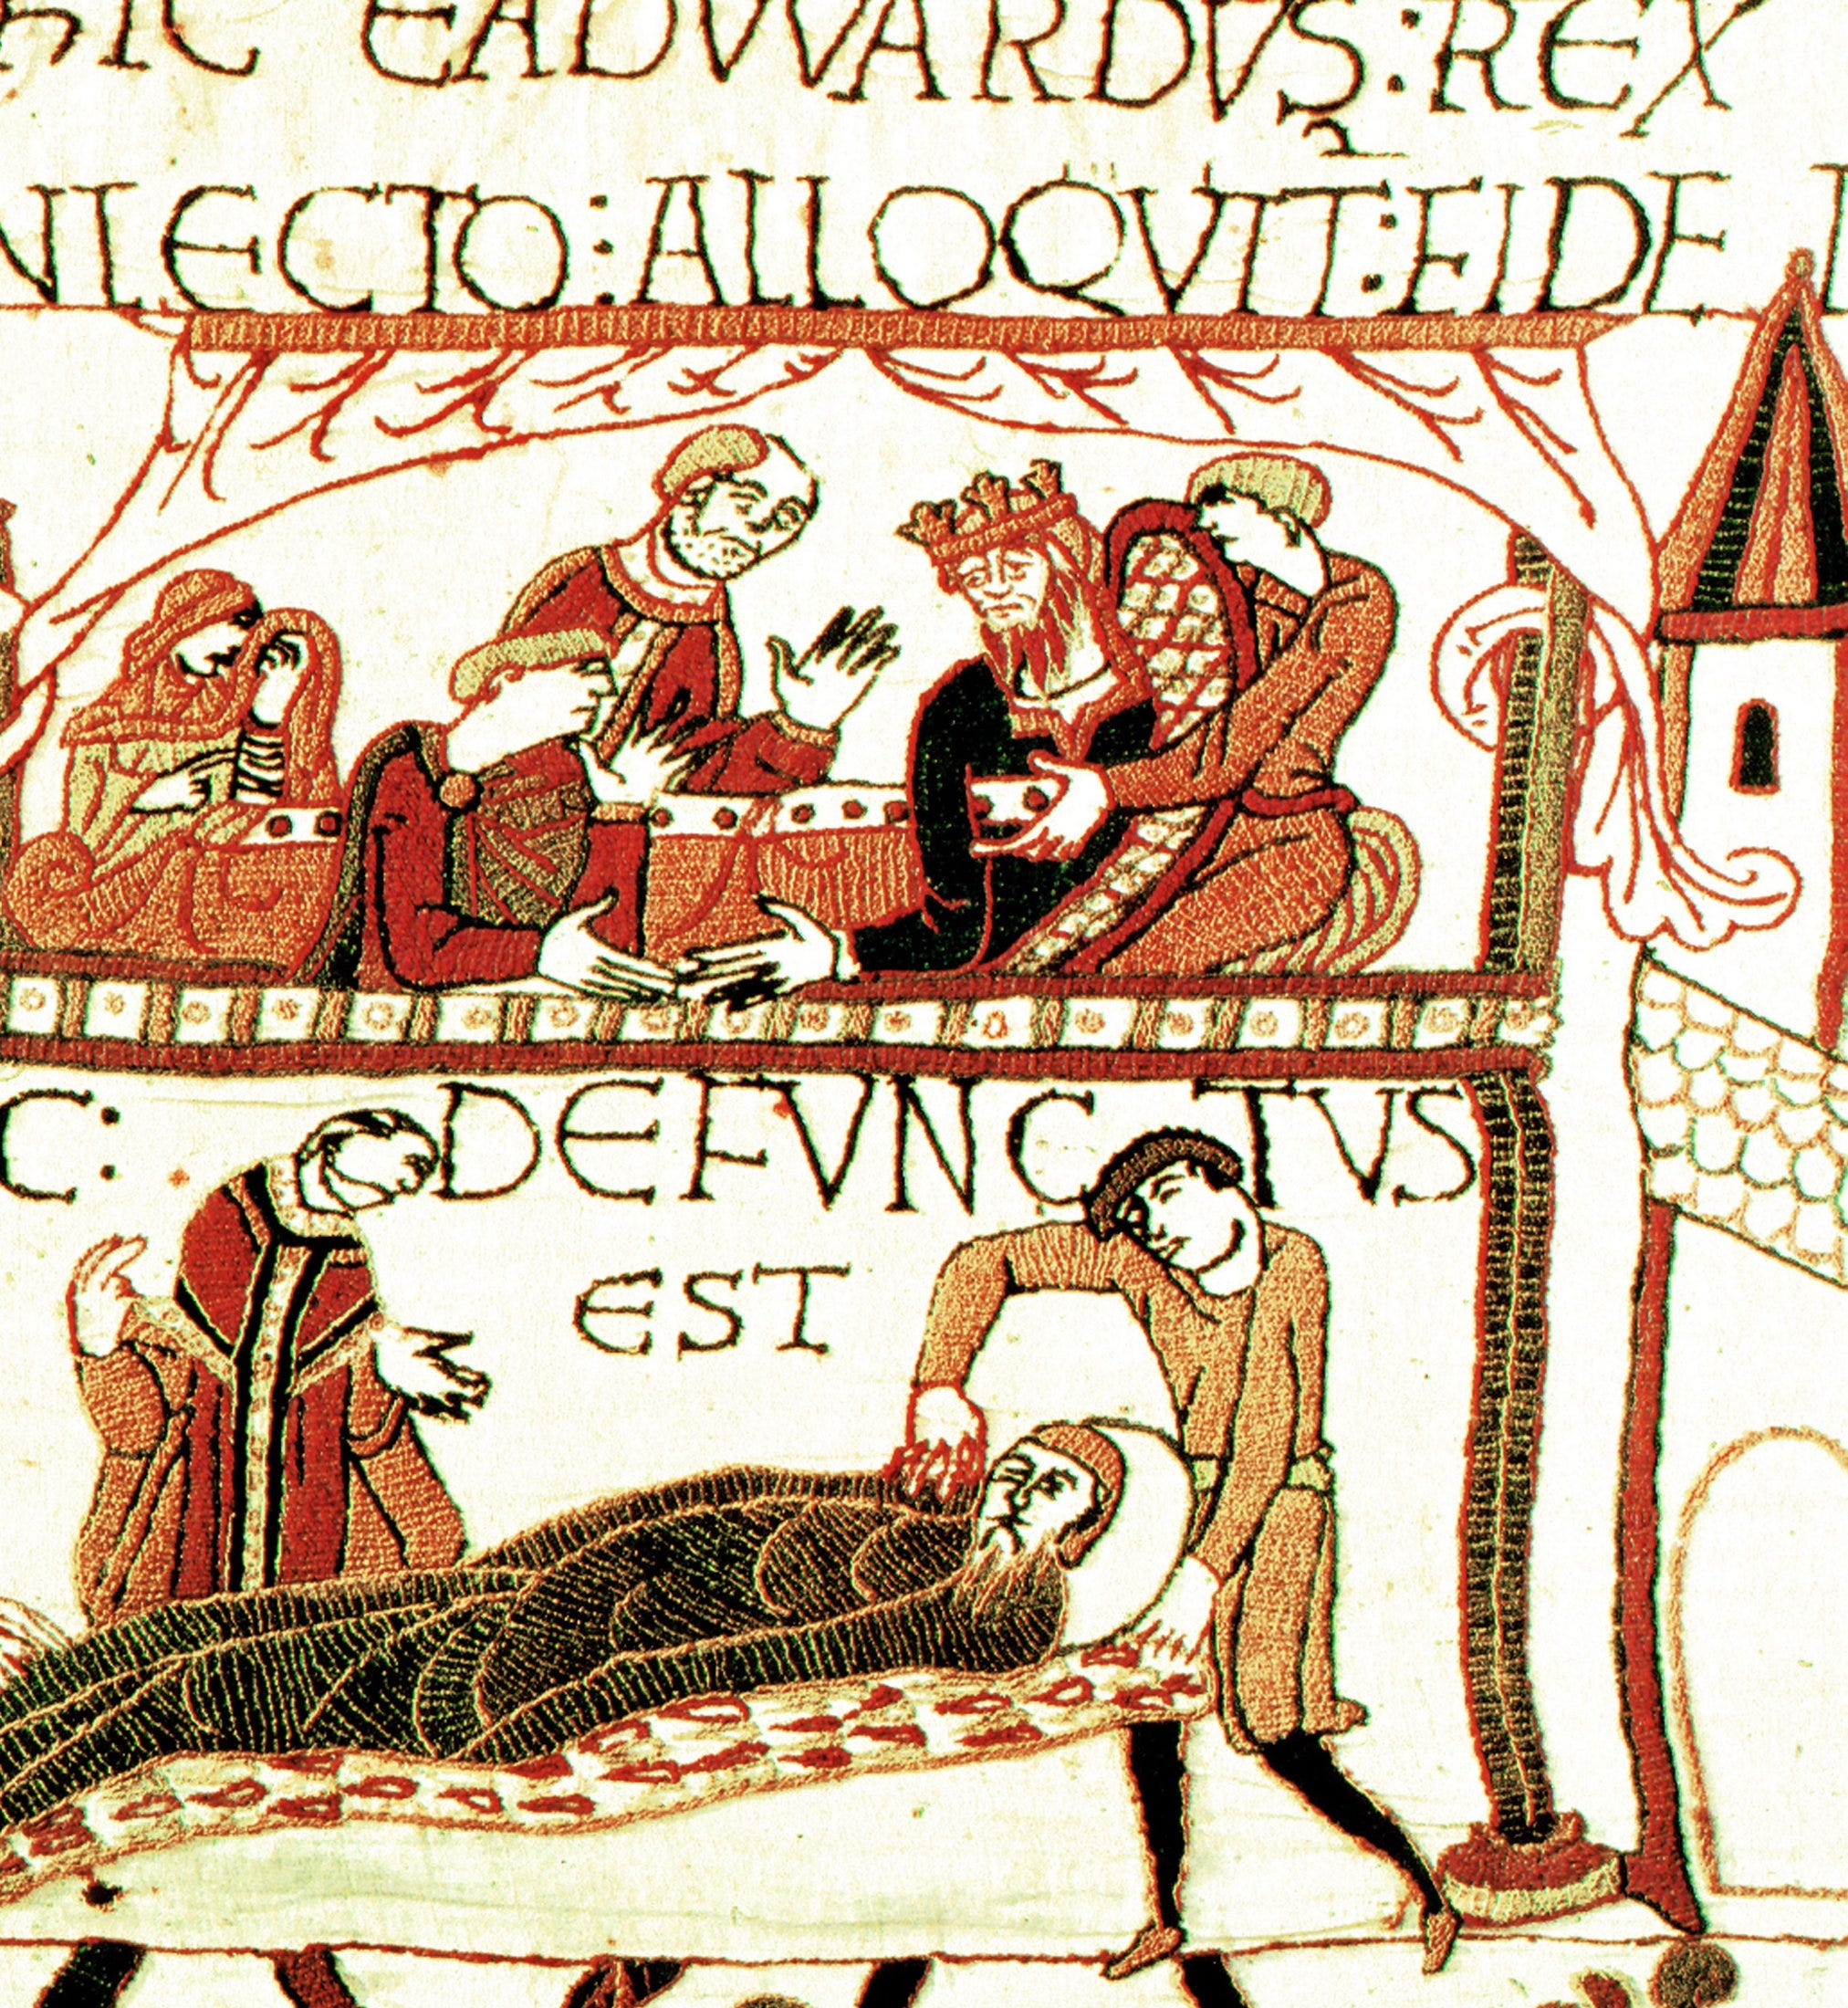 HIC EADVVARDVS : REX
N LECTO : ALLOQVIT : FIDE
C : DEFVNCTVS
EST